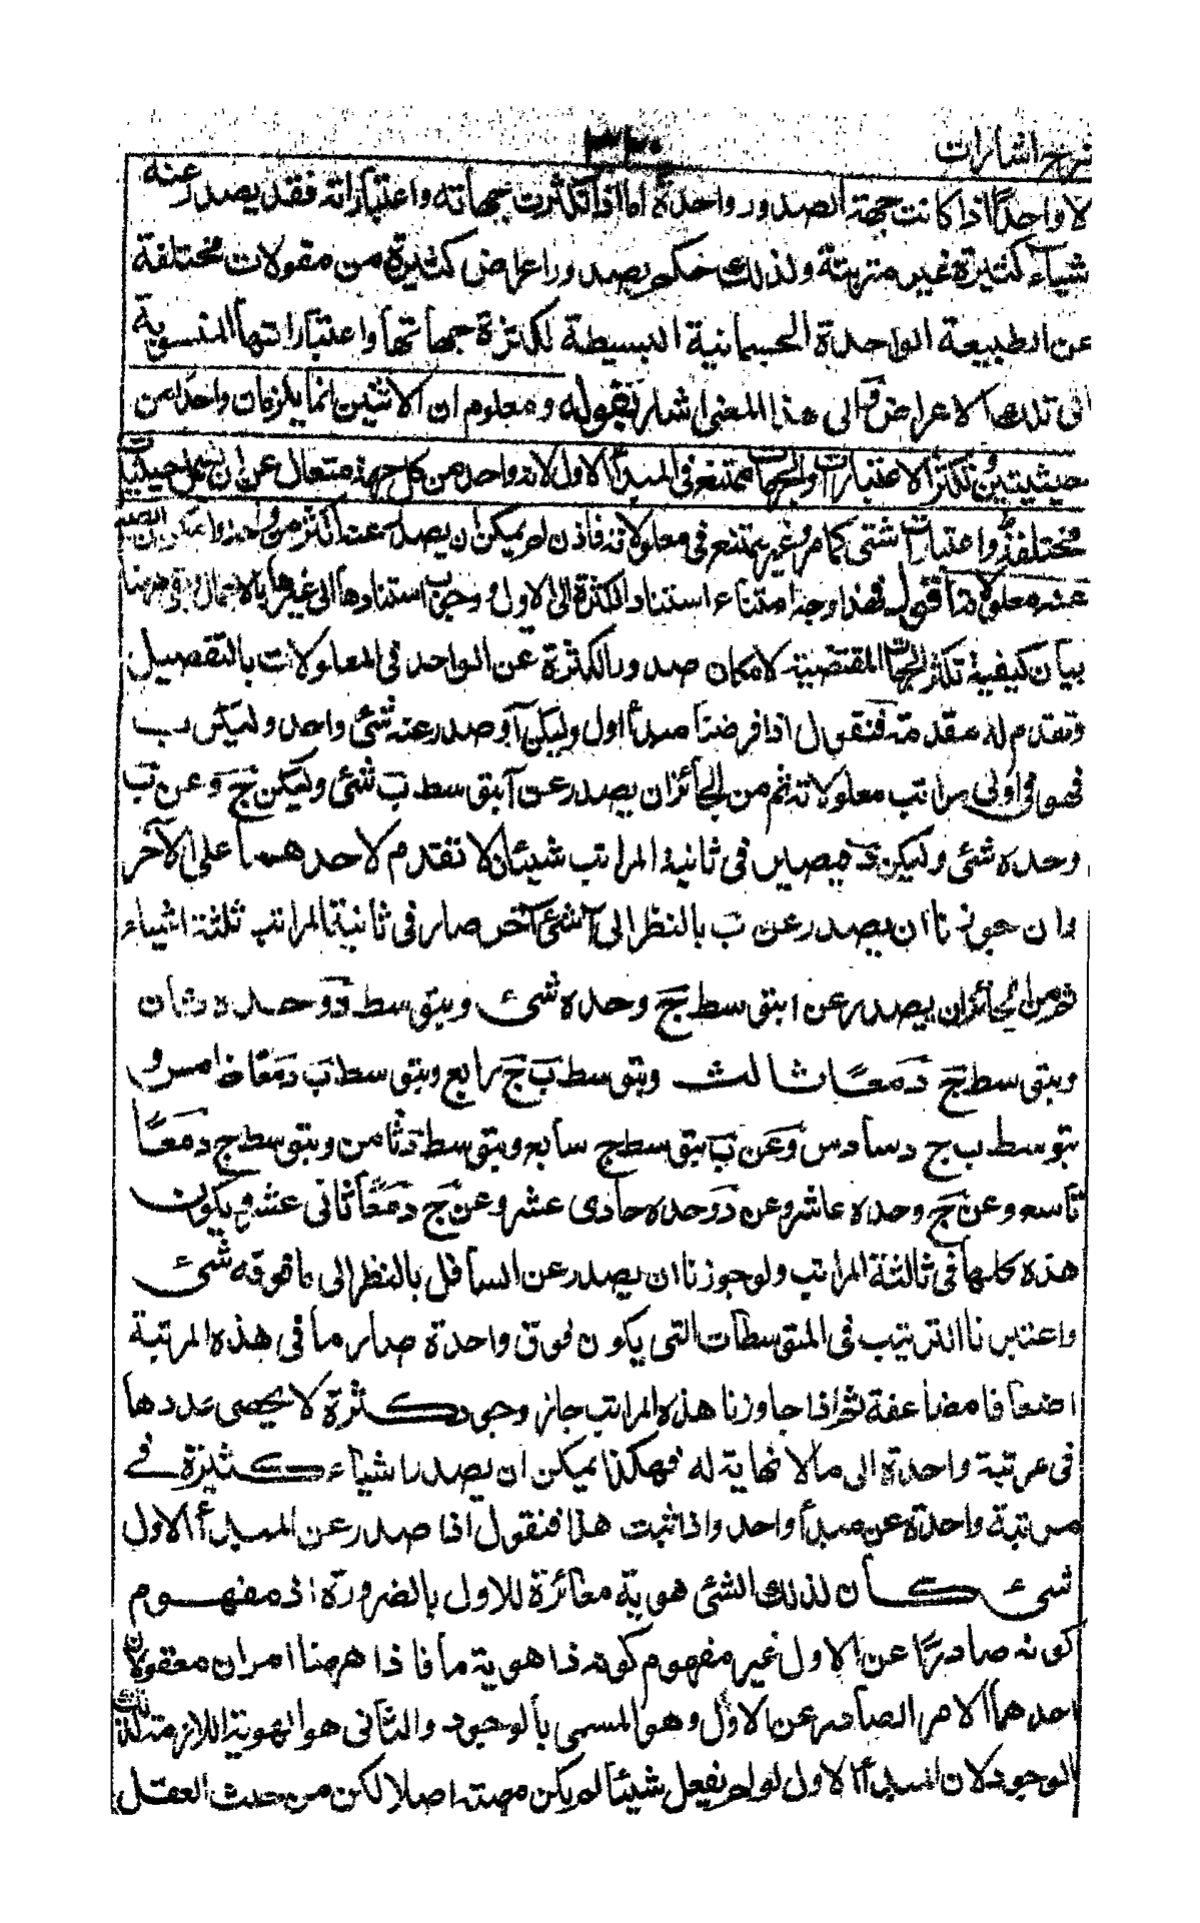 شرح اشارات
٣٢٠
لا واحدًا اذا كانت جهة الصدور واحدة اما اذا تكثرت جهاته واعتباراته فقد يصدر عنه
شياء كثيرة غير مترتبة ولذلك حكم بصدور اعراض كثيرة من مقولات مختلفة
عن الطبيعة الواحدة الجسمانية البسيطة لكثرة جهاتها واعتباراتها المنسوبة
الى تلك الاعراض والى هذا المعنى اشار بقوله ومعلوم ان الاثنين انما يلزمان واحدا من
حيثيتين وتكثر الاعتبارات والجهات ممتنع فى المبدأ الاول لانه واحد من كل جهة متعال عن ان يشتمل حيثيات
مختلفة واعتبارات شتى كما مر وغير ممتنع فى معلولاته فاذن لم يمكن ان يصدر عنه اكثر من واحد وامكن ان يصدر
عنه معلولاتنا قوله فهذا وجه امتناع استناد الكثرة الى الاول ووجوب استنادها الى غيرها بالاجمال وبقى هٰهنا
بيان كيفية تكثر الجهات المقتضية لامكان صدور الكثرة عن الواحد فى المعلولات بالتفصيل
ونقدم له مقدمة فنقول اذا فرضنا مبدأ اول وليكن آ وصدر عنه شئ واحد وليكن ب
فهو فى اولى مراتب معلولاته ثم من الجائز ان يصدر عن آ بتوسط ب شئ وليكن ج وعن ب
وحده شئ وليكن د فيصير فى ثانية المراتب شيئان لا تقدم لاحدهما على الآخر
وان جوزنا ان يصدر عن ب بالنظر الى آ شئ آخر صار فى ثانية المراتب ثلثة اشياء
ثم من الجائز ان يصدر عن ا بتوسط ج وحده شئ وبتوسط د وحده ثان
وبتوسط ج د معًا ثالث وبتوسط ب ج رابع وبتوسط ب د معًا خامس و
بتوسط ب ج د سادس وعن ب بتوسط ج سابع وبتوسط د ثامن وبتوسط ج د معًا
تاسع وعن ج وحده عاشر وعن د وحده حادى عشر وعن ج د معًا ثانى عشر ويكون
هذه كلها فى ثالثة المراتب ولو جوزنا ان يصدر عن السافل بالنظر الى ما فوقه شئ
واعتبرنا الترتيب فى المتوسطات التى يكون فوق واحدة صار ما فى هذه المرتبة
اضعافا مضاعفة ثم اذا جاوزنا هذه المراتب جاز وجود كثرة لا يحصى عددها
فى مرتبة واحدة الى ما لا نهاية له فهكذا يمكن ان يصدر اشياء كثيرة فى
مرتبة واحدة عن مبدأ واحد واذا ثبت هذا فنقول اذا صدر عن المبدأ الاول
شئ كان لذلك الشئ هوية مغائرة للاول بالضرورة اذ مفهوم
كونه صادرًا عن الاول غير مفهوم كونه ذا هوية ما فاذا هٰهنا امران معقولان
احدهما الامر الصادر عن الاول وهو المسمى بالوجود والثانى هو الهوية اللازمة لذلك
الوجود لان المبدأ الاول لو لم يفعل شيئا لم يكن مهية اصلا لكن من حيث العقل